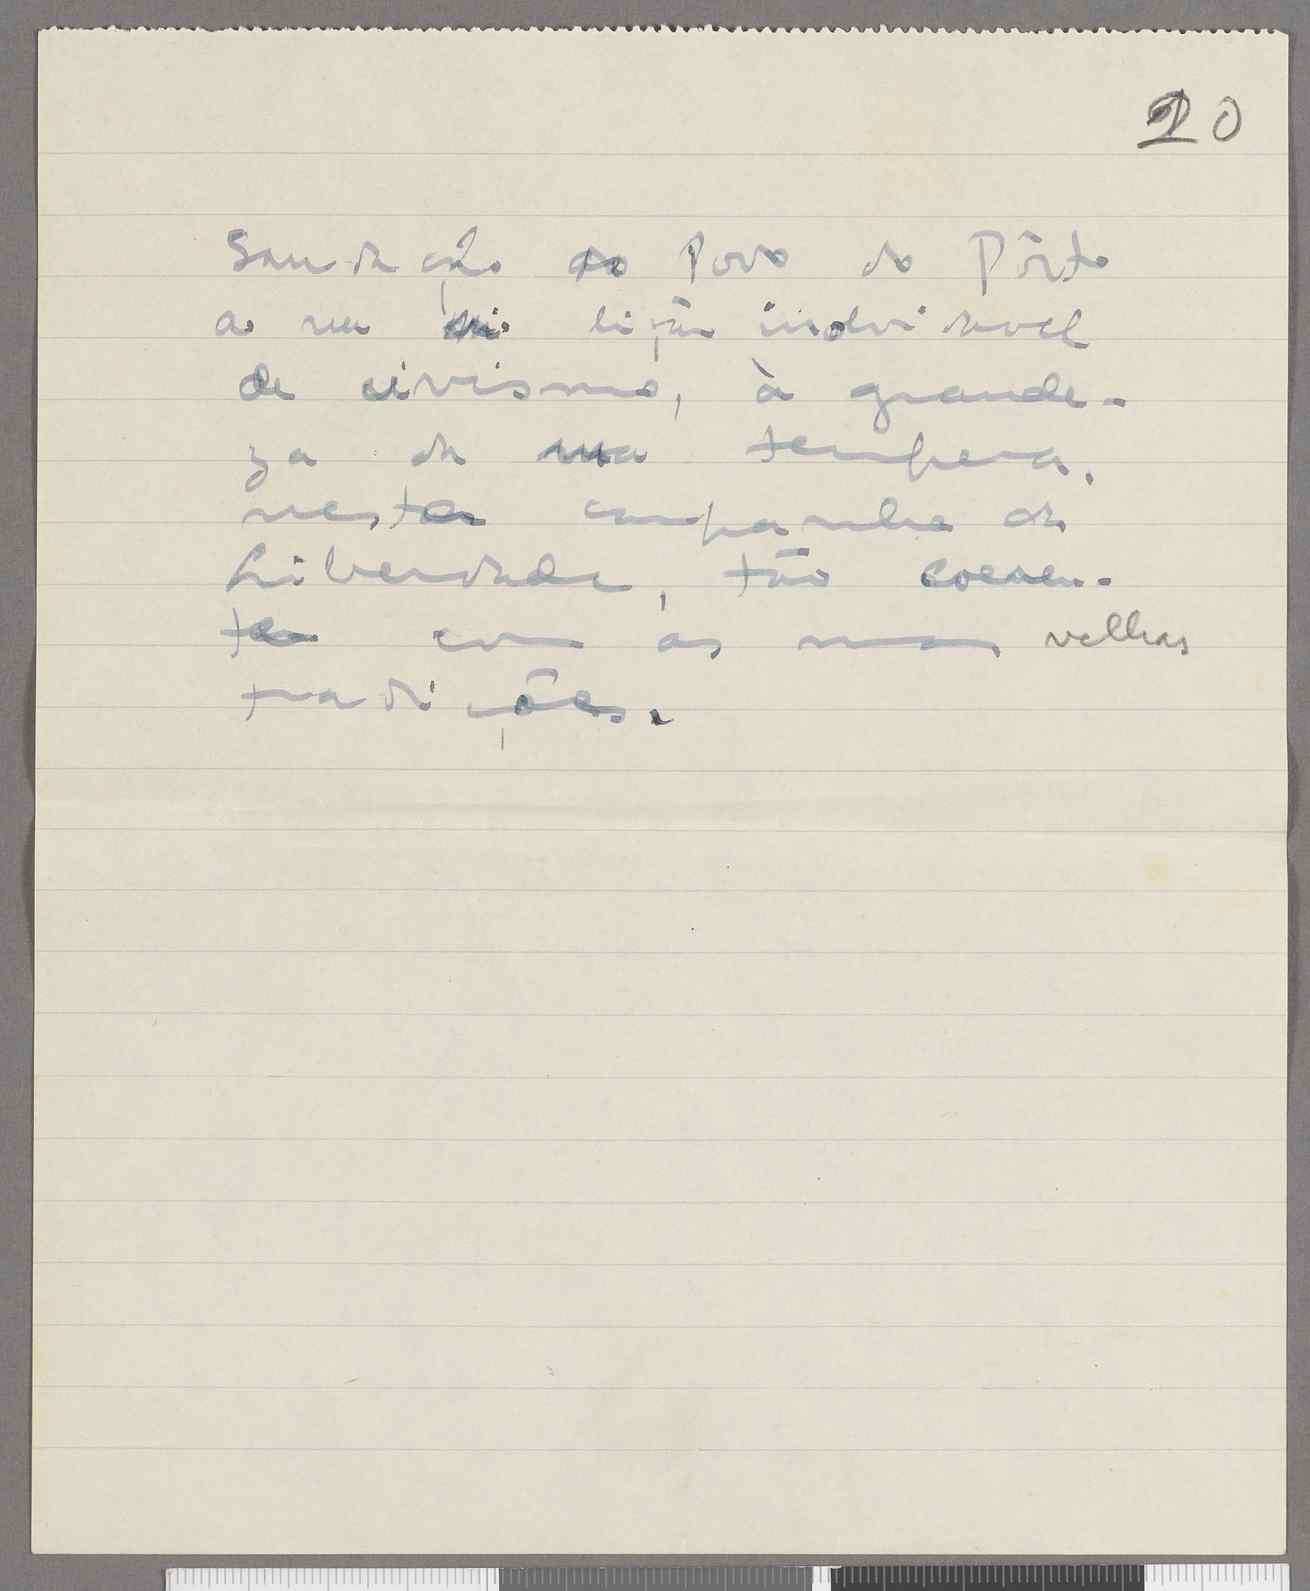 20
Saudação ao Povo do Pôrto
a sua lição inolvidavel
de civismo, à grande-
za da sua tempera,
nesta campanha da
Liberdade, tão coeren-
te com as suas velhas
tradições.